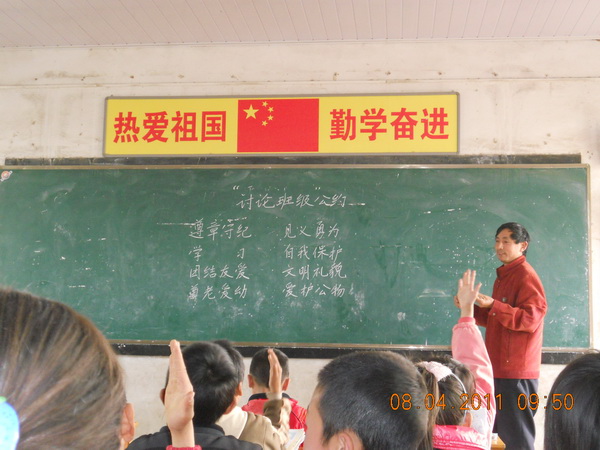 热爱祖国 勤学奋进
"讨论班级"公约
遵章守纪 见义勇为
学 习 自我保护
团结友爱 文明礼貌
尊老爱幼 爱护公物
08.04.2011 09:50